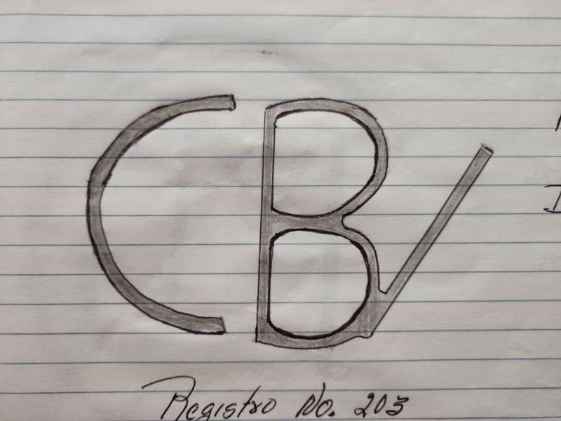 CBV
Registro No. 203